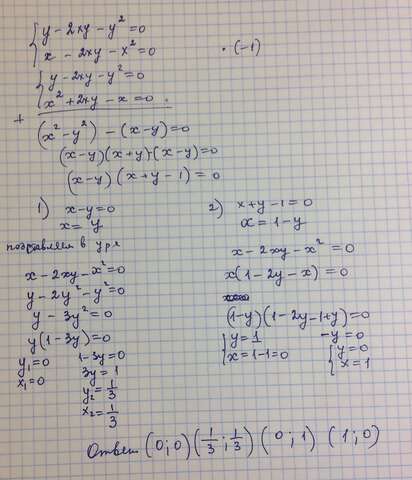 { y - 2xy - y² = 0
{ x - 2xy - x² = 0 · (-1)
{ y - 2xy - y² = 0
{ x² + 2xy - x = 0
+
(x² - y²) - (x - y) = 0
(x - y)(x + y) - (x - y) = 0
(x - y)(x + y - 1) = 0
1) x - y = 0
x = y
подставляем в ур я
x - 2xy - x² = 0
y - 2y² - y² = 0
y - 3y² = 0
y(1 - 3y) = 0
y₁ = 0 1 - 3y = 0
x₁ = 0 3y = 1
y₂ = 1/3
x₂ = 1/3
2) x + y - 1 = 0
x = 1 - y
x - 2xy - x² = 0
x(1 - 2y - x) = 0
(1 - y)(1 - 2y - 1 + y) = 0
{ y = 1 -y = 0
{ x = 1 - 1 = 0 { y = 0
{ x = 1
Ответ (0; 0) (1/3 ; 1/3) (0 ; 1) (1 ; 0)